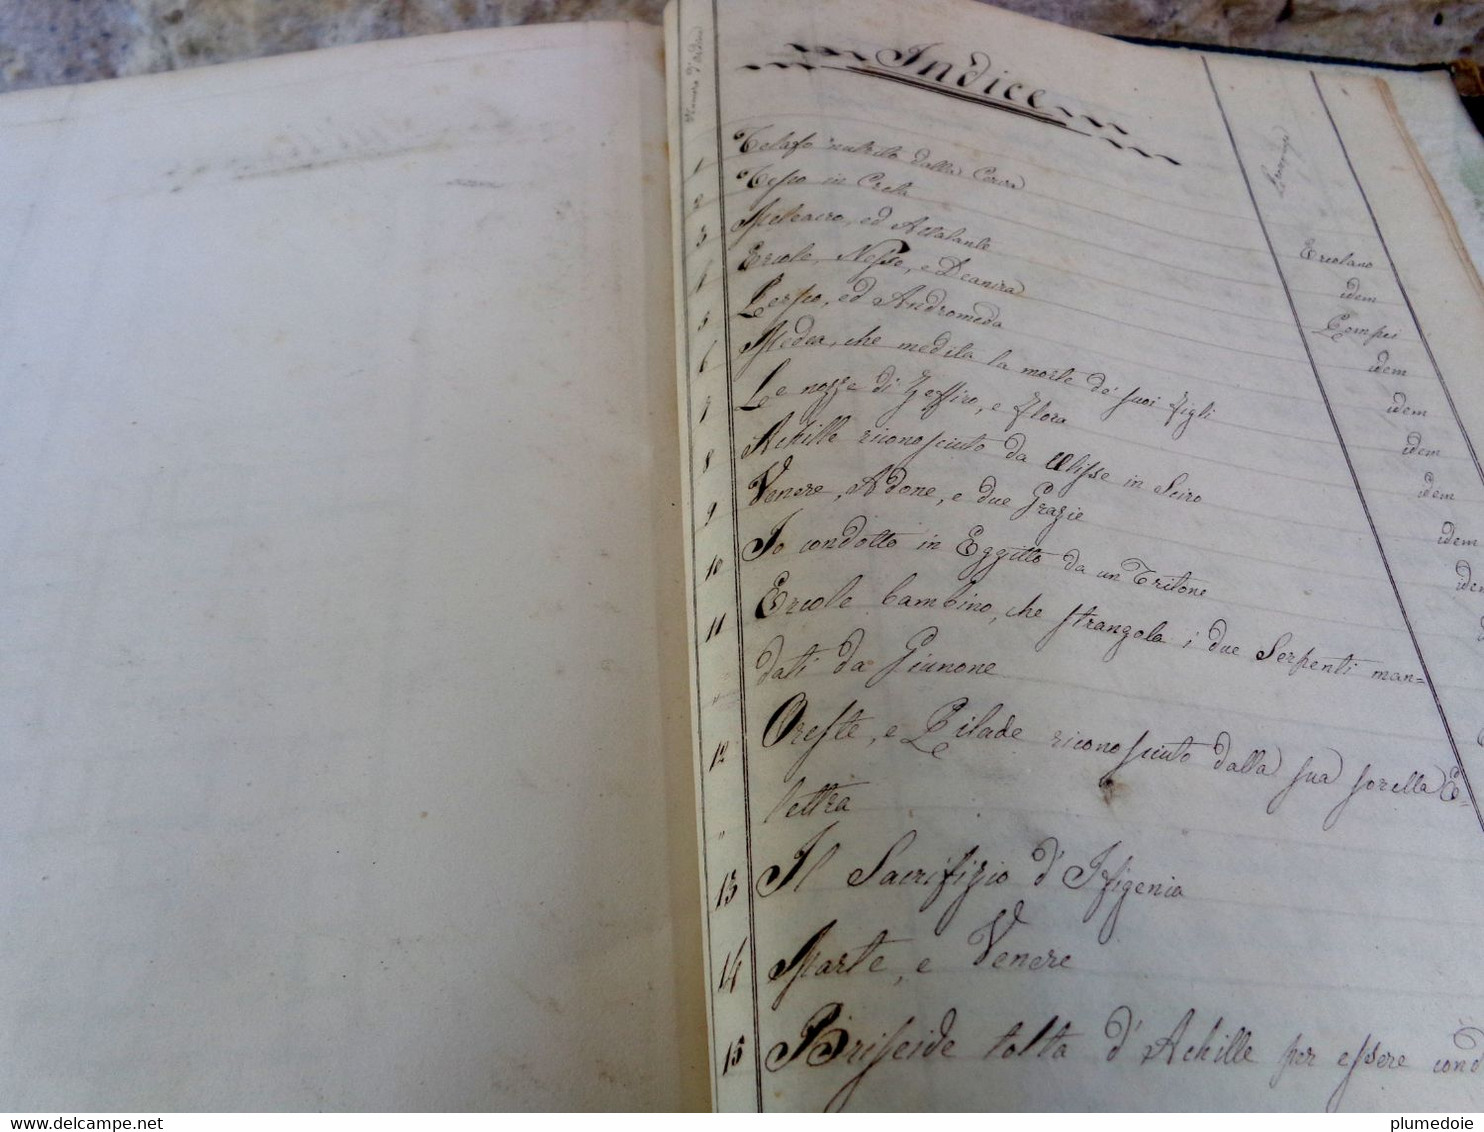 Indice
Numero d'ordine
1 Telafo nutrito dalla Cerva Ercolano
2 Teseo in Creta idem
3 Meleacro, ed Attalante Pompei
4 Ercole, Nesso, e Deanira idem
5 Perseo, ed Andromeda idem
6 Medea, che medita la morte de' suoi figli idem
7 Le nozze di Zeffiro, e Flora idem
8 Achille riconosciuto da Ulisse in Sciro idem
9 Venere, Adone, e due Grazie idem
10 Io condotto in Eggitto da un Tritone
11 Ercole bambino, che strangola i due Serpenti man=
" dati da Giunone
12 Oreste, e Pilade riconosciuto dalla sua sorella E=
" lettra
13 Il Sacrifizio d'Ifigenia
14 Marte, e Venere
15 Briseide tolta d'Achille per essere cond
delcampe.net
plumedoie